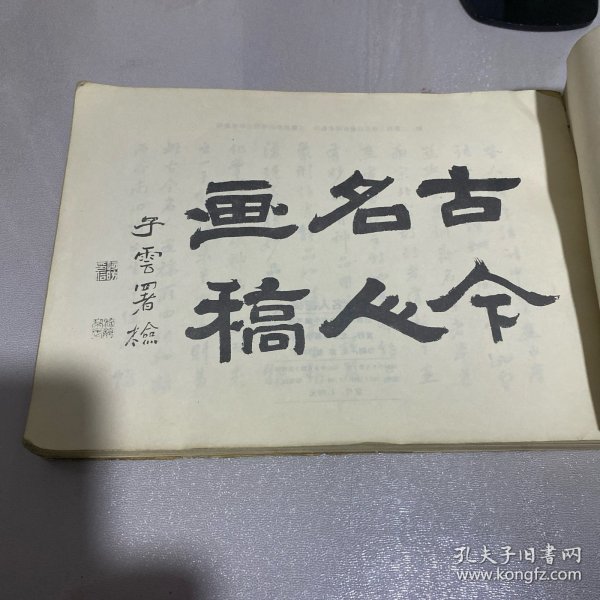 古今
名人
画稿
子雲署檢
孔夫子旧书网
www.kongfz.com